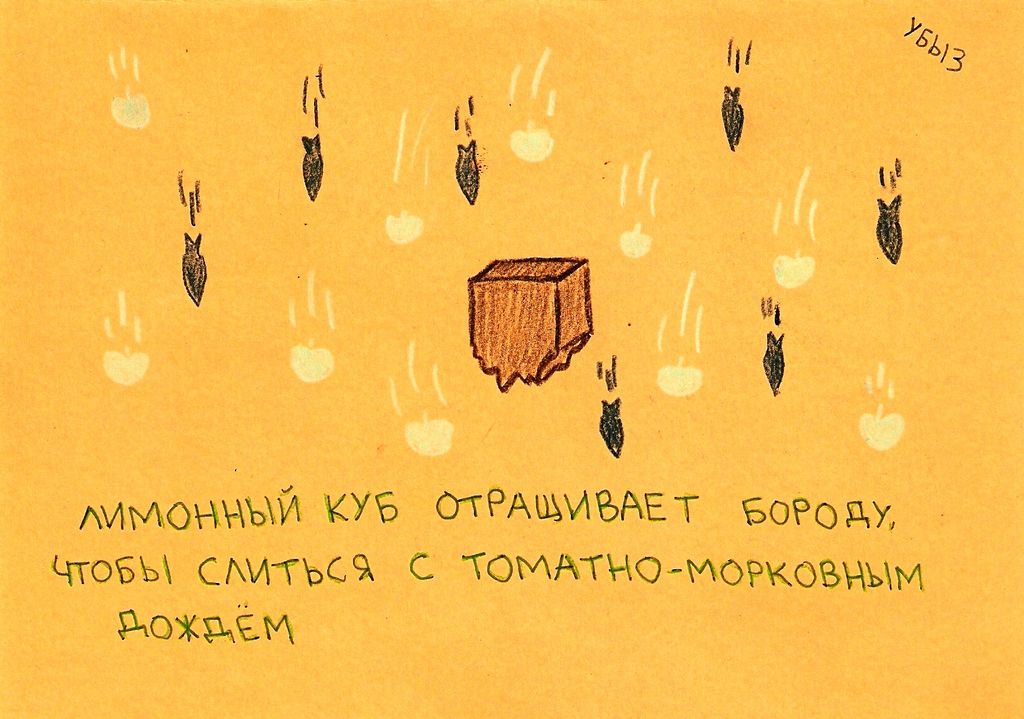 УБЫЗ
ЛИМОННЫЙ КУБ ОТРАЩИВАЕТ БОРОДУ,
ЧТОБЫ СЛИТЬСЯ С ТОМАТНО-МОРКОВНЫМ
ДОЖДЁМ